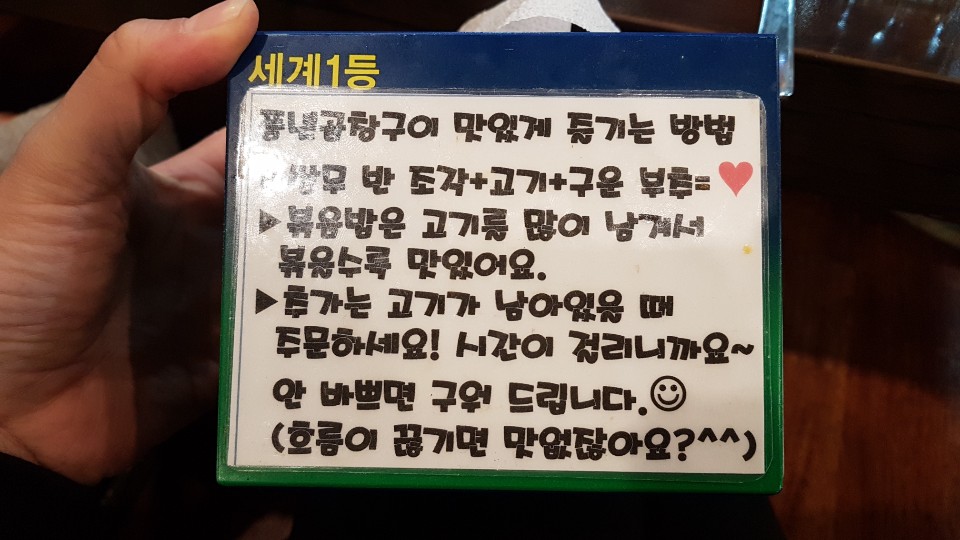 세계1등
풍년곱창구이 맛있게 즐기는 방법
쌈무 반 조각+고기+구운 부추=♥
▶볶음밥은 고기를 많이 남겨서
볶을수록 맛있어요.
▶추가는 고기가 남아있을 때
주문하세요! 시간이 걸리니까요~
안 바쁘면 구워 드립니다.☺
(흐름이 끊기면 맛없잖아요?^^)